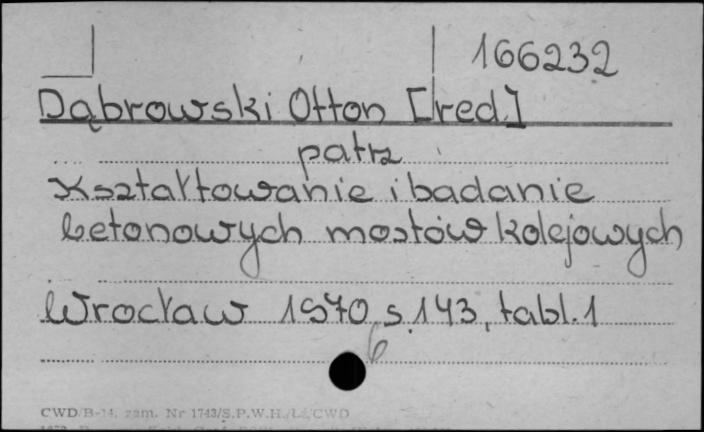 166232
Dąbrowski Otton [red.]
patrz
Kształtowanie i badanie
betonowych mostów kolejowych
Wrocław 1970 s. 143, tabl. 1
6
CWD/B-14, zam. Nr 1743/S.P.W.H./Ł/CWD